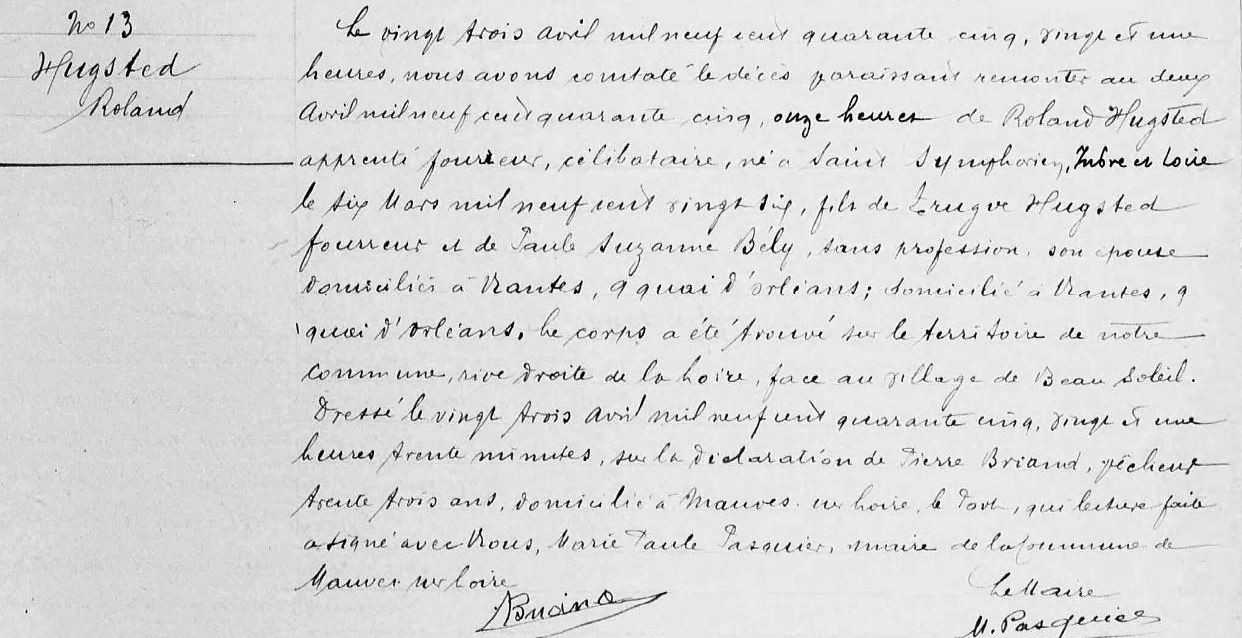 No 13
Hugsted
Roland
Le vingt trois Avril mil neuf cent quarante cinq, vingt et une
heures, nous avons constaté le décès paraissant remonter au deux
Avril mil neuf cent quarante cinq, onze heures de Roland Hugsted
apprenti fourreur, célibataire, né à Saint Symphorien, Indre et Loire
le six Mars mil neuf cent vingt six, fils de Trugve Hugsted
fourreur et de Paule Suzanne Bély, sans profession, son épouse
domiciliés à Nantes, 9 quai d'orléans; domicilié à Nantes, 9
quai d'orléans. Le corps a été trouvé sur le territoire de notre
commune, rive droite de la Loire, face au village de Beau Soleil.
Dressé le vingt trois Avril mil neuf cent quarante cinq, vingt et une
heures trente minutes, sur la déclaration de Pierre Briand, pêcheur
trente trois ans, domicilié à Mauves sur Loire, le Port, qui lecture faite
a signé avec Nous, Marie Paule Pasquier, maire de la Commune de
Mauves sur Loire
Le Maire
Briand
M. Pasquier